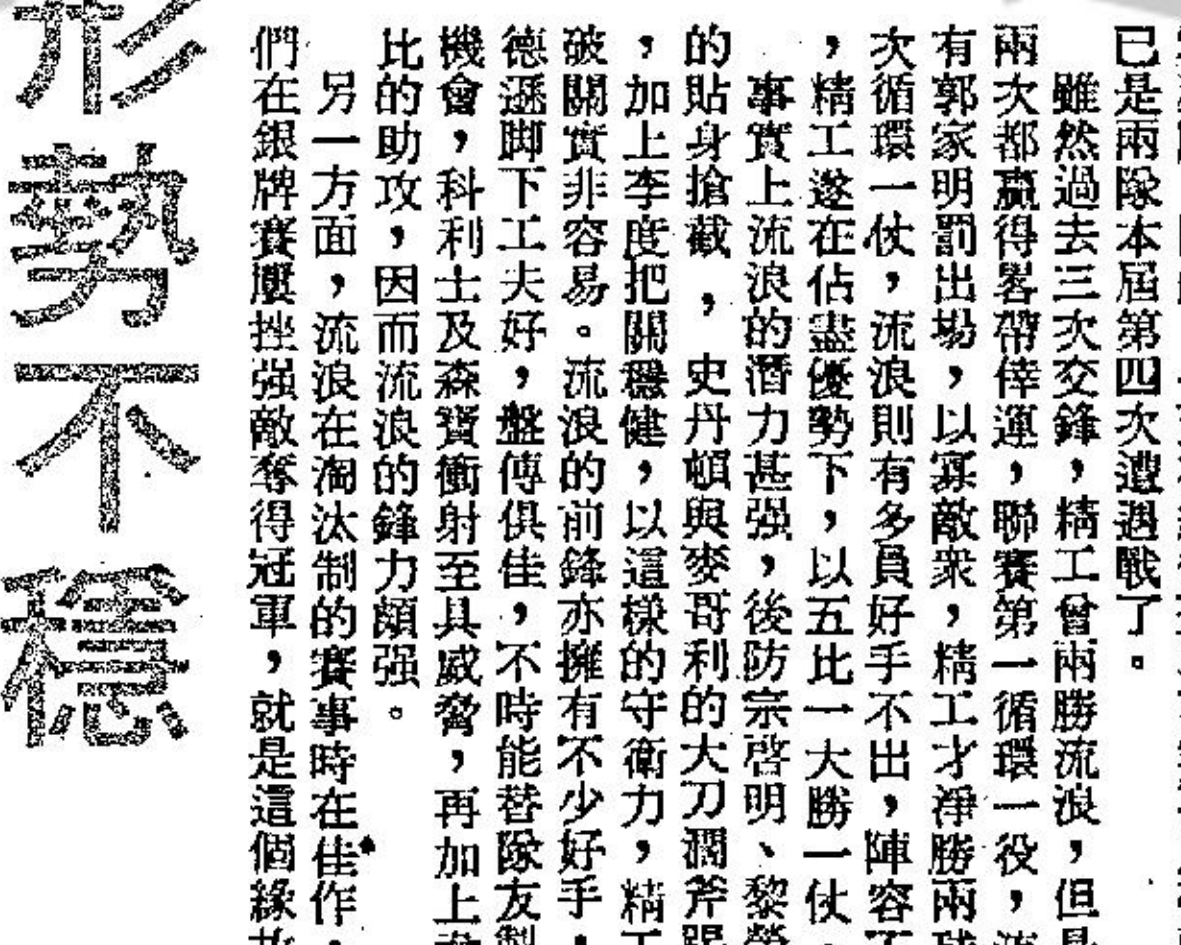 已是兩隊本屆第四次遭遇戰了。
雖然過去三次交鋒，精工曾兩勝流浪，但是
兩次都贏得畧帶倖運，聯賽第一循環一役，流
有郭家明罰出場，以寡敵衆，精工才淨勝兩球
次循環一仗，流浪則有多員好手不出，陣容不
，精工遂在佔盡優勢下，以五比一大勝一仗，
事實上流浪的潛力甚强，後防宗啓明、黎榮
的貼身搶截，史丹頓與麥哥利的大刀濶斧踢
，加上李度把關穩健，以這樣的守衛力，精工
破關實非容易。流浪的前鋒亦擁有不少好手，
德遜脚下工夫好，盤傳俱佳，不時能替隊友製
機會，科利士及森寶衝射至具威脅，再加上
比的助攻，因而流浪的鋒力頗强。
另一方面，流浪在淘汰制的賽事時在佳作，
們在銀牌賽屢挫强敵奪得冠軍，就是這個緣故
形勢不穩